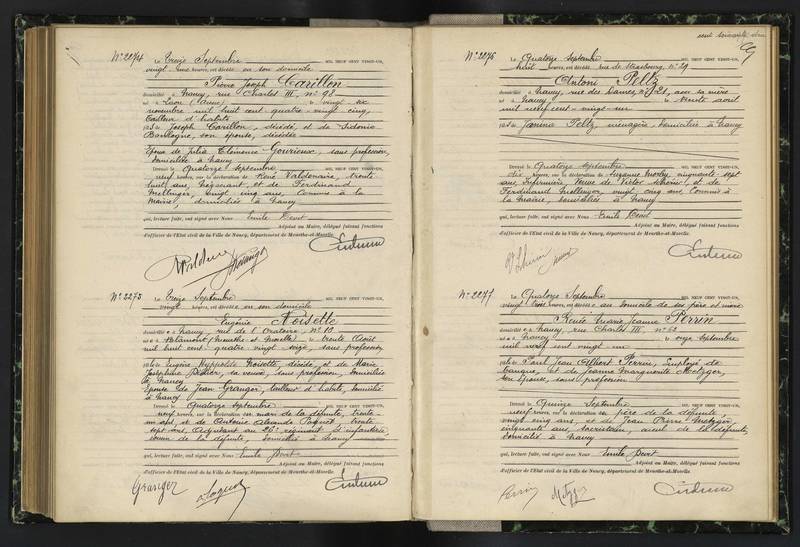 N° 2274
Le Treize Septembre mil neuf cent vingt-un,
vingt une heures, est décédé en son domicile
Pierre Joseph Carillon
domicilié à Nancy, rue Charles III, n° 98
né à Laon (Aisne) le vingt six
novembre mil huit cent quatre-vingt cinq,
tailleur d'habits
fils de Joseph Carillon, décédé, et de Sidonie
son épouse, décédée
Epoux de Julia Clémence Gourieux, sans profession,
domiciliée à Nancy
Dressé le Quatorze Septembre mil neuf cent vingt-un,
neuf heures, sur la déclaration de René Valdenaire, trente
huit ans, négociant, et de Ferdinand
Mellinger, vingt cinq ans, Commis à la
Mairie, domiciliés à Nancy
qui, lecture faite, ont signé avec Nous Emile
Adjoint au Maire, délégué faisant fonctions
d'officier de l'Etat civil de la Ville de Nancy, département de Meurthe-et-Moselle.
N° 2275
Le Treize Septembre mil neuf cent vingt-un,
vingt heures, est décédée en son domicile
Eugénie Noisette
domiciliée à Nancy, rue de l'Oratoire, n° 13
née à Blâmont (Meurthe et Moselle) le trente Août
mil huit cent quatre-vingt-seize, sans profession,
fille de Eugène Hyppolite Noisette, décédé, et de Marie
Joséphine Didier, sa veuve, sans profession, domiciliée
à Nancy
épouse de Jean Granger, tailleur d'habits, domicilié
à Nancy
Dressé le Quatorze Septembre mil neuf cent vingt-un,
neuf heures, sur la déclaration du mari de la défunte, trente-
un ans, et de Antoine Alexandre Paquot, trente
sept ans, Adjudant au 26e régiment d'infanterie
de la défunte, domicilié à Nancy
qui, lecture faite, ont signé avec Nous Emile
Adjoint au Maire, délégué faisant fonctions
d'officier de l'Etat civil de la Ville de Nancy, département de Meurthe-et-Moselle.
Granger
N° 2276
Le Quatorze Septembre mil neuf cent vingt-un,
huit heures, est décédé rue de Strasbourg, n° 29
Antoni Peltz
domicilié à Nancy, rue des Dames, n° 21, avec sa mère
né à Nancy le trente avril
mil neuf cent-vingt-un
fils de Janina Peltz, ménagère, domiciliée à Nancy
Dressé le Quatorze Septembre mil neuf cent vingt-un,
dix heures, sur la déclaration de Suzanne cinquante-sept
ans, infirmière, Veuve de Victor et de
Ferdinand Mellinger, vingt cinq ans, Commis à
la Mairie, domiciliés à Nancy
qui, lecture faite, ont signé avec Nous Emile
Adjoint au Maire, délégué faisant fonctions
d'officier de l'Etat civil de la Ville de Nancy, département de Meurthe-et-Moselle.
N° 2277
Le Quatorze Septembre mil neuf cent vingt-un,
vingt trois heures, est décédée au domicile de ses père et mère
Renée Marie Jeanne Perrin
domiciliée à Nancy, rue Charles III, n° 62
née à Nancy le onze Septembre
mil neuf cent vingt-un
fille de Paul Jean Albert Perrin, Employé de
banque, et de Jeanne Marguerite Metzger,
son épouse, sans profession
Dressé le Quinze Septembre mil neuf cent vingt-un,
neuf heures, sur la déclaration du père de la défunte,
vingt cinq ans, et de Jean Pierre Metzger,
cinquante ans, Secrétaire, aïeul de la défunte,
domiciliés à Nancy
qui, lecture faite, ont signé avec Nous Emile
Adjoint au Maire, délégué faisant fonctions
d'officier de l'Etat civil de la Ville de Nancy, département de Meurthe-et-Moselle.
Perrin